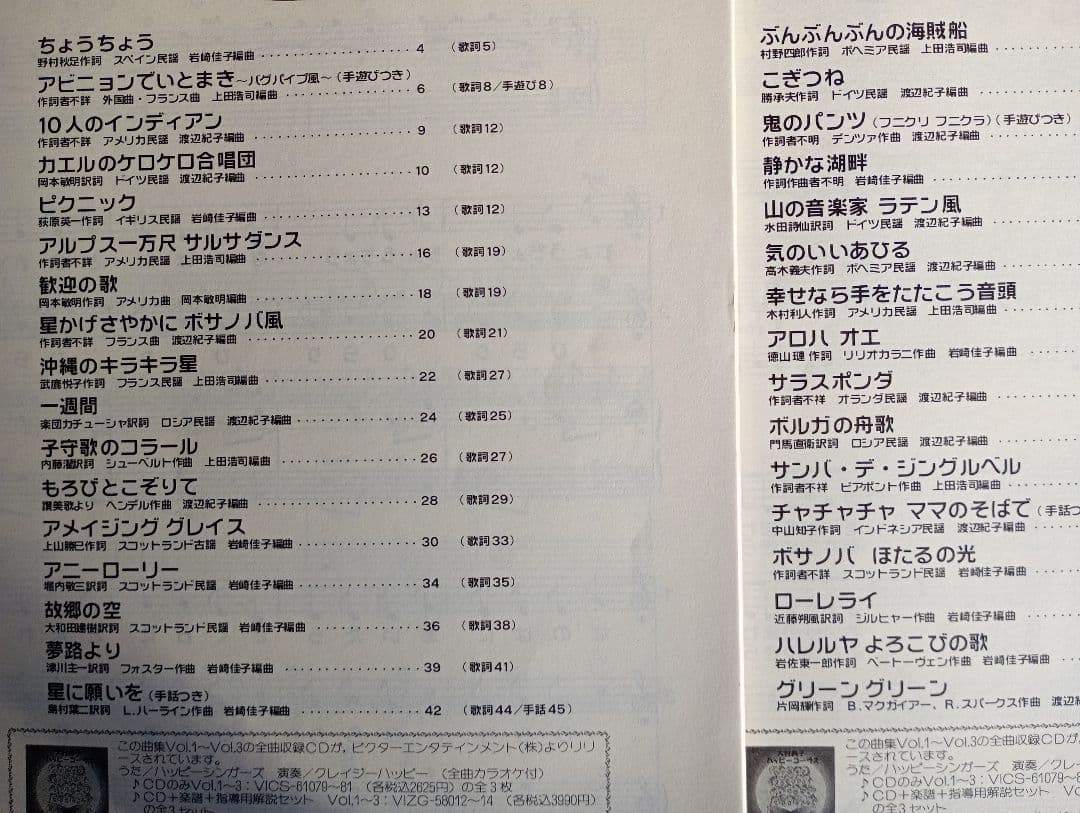 ちょうちょう
野村秋足作詞 スペイン民謡 岩崎佳子編曲 ・・・・・・・・・・・・・・・・・・・・ 4 (歌詞5)
アビニョンでいとまき〜バグパイプ風〜(手遊びつき)
作詞者不詳 外国曲・フランス曲 上田浩司編曲 ・・・・・・・・・・・・・・・・ 6 (歌詞8/手遊び8)
10人のインディアン
作詞者不詳 アメリカ民謡 渡辺紀子編曲 ・・・・・・・・・・・・・・・・・・・・ 9 (歌詞12)
カエルのケロケロ合唱団
岡本敏明訳詞 ドイツ民謡 渡辺紀子編曲 ・・・・・・・・・・・・・・・・・・・・ 10 (歌詞12)
ピクニック
萩原英一作詞 イギリス民謡 岩崎佳子編曲 ・・・・・・・・・・・・・・・・・・・ 13 (歌詞12)
アルプス一万尺 サルサダンス
作詞者不詳 アメリカ民謡 上田浩司編曲 ・・・・・・・・・・・・・・・・・・・・ 16 (歌詞19)
歓迎の歌
岡本敏明作詞 アメリカ曲 岡本敏明編 ・・・・・・・・・・・・・・・・・・・・・ 18 (歌詞19)
星かげさやかに ボサノバ風
作詞者不詳 フランス曲 渡辺紀子編曲 ・・・・・・・・・・・・・・・・・・・・・ 20 (歌詞21)
沖縄のキラキラ星
武鹿悦子作詞 フランス民謡 上田浩司編曲 ・・・・・・・・・・・・・・・・・・・ 22 (歌詞27)
一週間
楽団カチューシャ訳詞 ロシア民謡 渡辺紀子編曲 ・・・・・・・・・・・・・・・・ 24 (歌詞25)
子守歌のコラール
内藤濯訳詞 シューベルト作曲 上田浩司編曲 ・・・・・・・・・・・・・・・・・・ 26 (歌詞27)
もろびとこぞりて
讃美歌より ヘンデル作曲 渡辺紀子編曲 ・・・・・・・・・・・・・・・・・・・・ 28 (歌詞29)
アメイジング グレイス
上山勝己作詞 スコットランド古謡 岩崎佳子編曲 ・・・・・・・・・・・・・・・・ 30 (歌詞33)
アニーローリー
堀内敬三訳詞 スコットランド民謡 岩崎佳子編曲 ・・・・・・・・・・・・・・・・ 34 (歌詞35)
故郷の空
大和田建樹訳詞 スコットランド民謡 岩崎佳子編曲 ・・・・・・・・・・・・・・・ 36 (歌詞38)
夢路より
津川圭一訳詞 フォスター作曲 岩崎佳子編曲 ・・・・・・・・・・・・・・・・・・ 39 (歌詞41)
星に願いを(手話つき)
島村葉二訳詞 L.ハーライン作曲 岩崎佳子編曲 ・・・・・・・・・・・・・・・・・ 42 (歌詞44/手話45)
この曲集Vol.1〜Vol.3の全曲収録CDが、ビクターエンタテインメント(株)よりリリ
ースされています。
うた/ハッピーシンガーズ 演奏/クレイジーハッピー (全曲カラオケ付)
♪CDのみVol.1〜3:VICS-61079〜81 (各税込2625円)の全3枚
♪CD+楽譜+指導用解説セット Vol.1〜3:VIZG-58012〜14 (各税込3990円)
ぶんぶんぶんの海賊船
村野四郎作詞 ボヘミア民謡 上田浩司編曲 ・・・・・・
こぎつね
勝承夫作詞 ドイツ民謡 渡辺紀子編曲 ・・・・・・・・
鬼のパンツ(フニクリ フニクラ)(手遊びつき)
作詞者不明 デンツァ作曲 渡辺紀子編曲 ・・・・・・・
静かな湖畔
作詞作曲者不明 岩崎佳子編曲 ・・・・・・・・・・・
山の音楽家 ラテン風
水田詩仙訳詞 ドイツ民謡 渡辺紀子編曲 ・・・・・・・
気のいいあひる
高木義夫作詞 ボヘミア民謡 渡辺紀子編曲 ・・・・・・
幸せなら手をたたこう音頭
木村利人作詞 アメリカ民謡 上田浩司編曲 ・・・・・・
アロハ オエ
徳山璉作詞 リリオカラニ作曲 岩崎佳子編曲 ・・・・・
サラスポンダ
作詞者不祥 オランダ民謡 渡辺紀子編曲 ・・・・・・・
ボルガの舟歌
門馬直衛訳詞 ロシア民謡 渡辺紀子編曲 ・・・・・・・
サンバ・デ・ジングルベル
作詞者不祥 ピアポント作曲 上田浩司編曲 ・・・・・・
チャチャチャ ママのそばで(手話つ
中山知子作詞 インドネシア民謡 渡辺紀子編曲 ・・・・
ボサノバ ほたるの光
作詞者不詳 スコットランド民謡 岩崎佳子編曲 ・・・・
ローレライ
近藤朔風訳詞 ジルヒャー作曲 岩崎佳子編曲 ・・・・・
ハレルヤ よろこびの歌
岩佐東一郎作詞 ベートーヴェン作曲 岩崎佳子編曲 ・・
グリーン グリーン
片岡輝作詞 B.マクガイアー、R.スパークス作曲 渡辺
この曲集Vol.1〜Vol.3の全曲収録CDが
ースされています。
うた/ハッピーシンガーズ 演奏/クレイ
♪CDのみVol.1〜3:VICS-61079〜8
♪CD+楽譜+指導用解説セット Vo
の全3セット